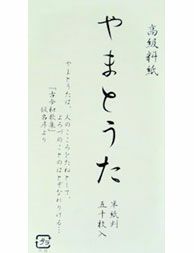 高級料紙
やまとうた
半紙判
五十枚入
やまとうたは、人のこころをたねとして、
よろづのことのはとぞなれりける…
『古今和歌集』
仮名序より